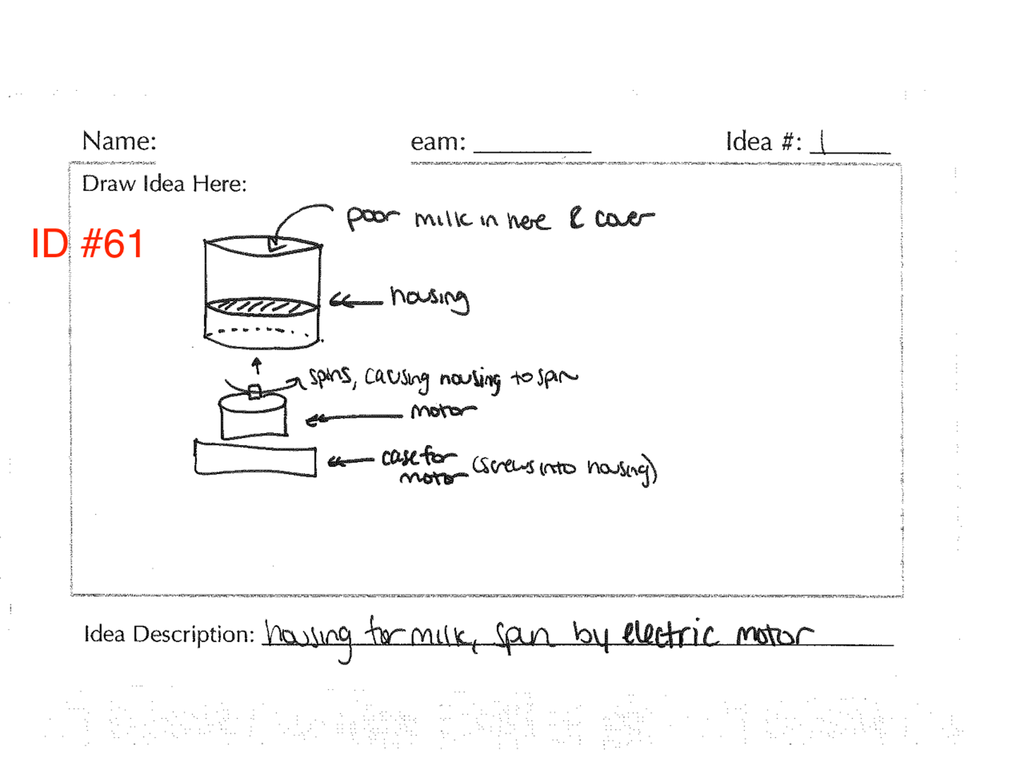 Name: eam: Idea #: 1
Draw Idea Here:
ID #61
poor milk in here & cover
housing
spins, causing housing to spin
motor
case for motor (screws into housing)
Idea Description: housing for milk, spun by electric motor